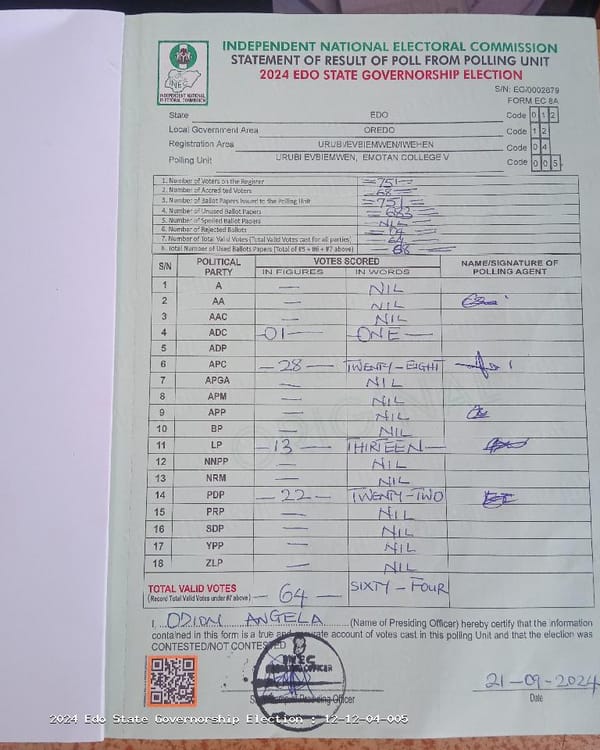 INDEPENDENT NATIONAL ELECTORAL COMMISSION
STATEMENT OF RESULT OF POLL FROM POLLING UNIT
2024 EDO STATE GOVERNORSHIP ELECTION
INEC
INDEPENDENT NATIONAL ELECTORAL COMMISSION
S/N: EG/0002879
FORM EC 8A
State EDO Code 0 1 2
Local Government Area OREDO Code 1 2
Registration Area URUBI/EVBIEMWEN/IWEHEN Code 0 4
Polling Unit URUBI EVBIEMWEN, EMOTAN COLLEGE V Code 0 0 5
1. Number of Voters on the Register 751
2. Number of Accredited Voters 68
3. Number of Ballot Papers Issued to the Polling Unit 751
4. Number of Unused Ballot Papers 683
5. Number of Spoiled Ballot Papers NIL
6. Number of Rejected Ballots 04
7. Number of Total Valid Votes (Total Valid Votes cast for all parties) 64
8. Total Number of Used Ballots Papers (Total of #5 + #6 + #7 above) 68
S/N POLITICAL PARTY VOTES SCORED NAME/SIGNATURE OF POLLING AGENT
IN FIGURES IN WORDS
1 A — NIL
2 AA — NIL
3 AAC — NIL
4 ADC —01— ONE —
5 ADP
6 APC —28— TWENTY-EIGHT
7 APGA — NIL
8 APM — NIL
9 APP — NIL
10 BP — NIL
11 LP —13— THIRTEEN—
12 NNPP — NIL
13 NRM — NIL
14 PDP —22— TWENTY-TWO
15 PRP — NIL
16 SDP — NIL
17 YPP — NIL
18 ZLP — NIL
TOTAL VALID VOTES —64— SIXTY-FOUR
(Record Total Valid Votes under #7 above)
I, ODION ANGELA (Name of Presiding Officer) hereby certify that the information
contained in this form is a true and account of votes cast in this polling Unit and that the election was
CONTESTED/NOT CONTESTED
INEC
Officer
21-09-2024
Date
2024 Edo State Governorship Election : 12-12-04-005